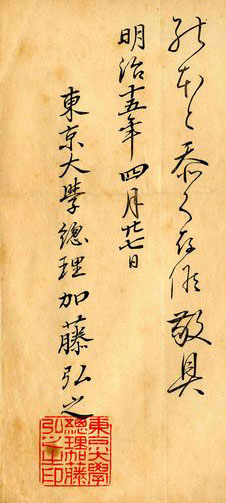 存候敬具
明治十五年四月廿七日
東京大學總理加藤弘之
東京大學
總理加藤
弘之之印